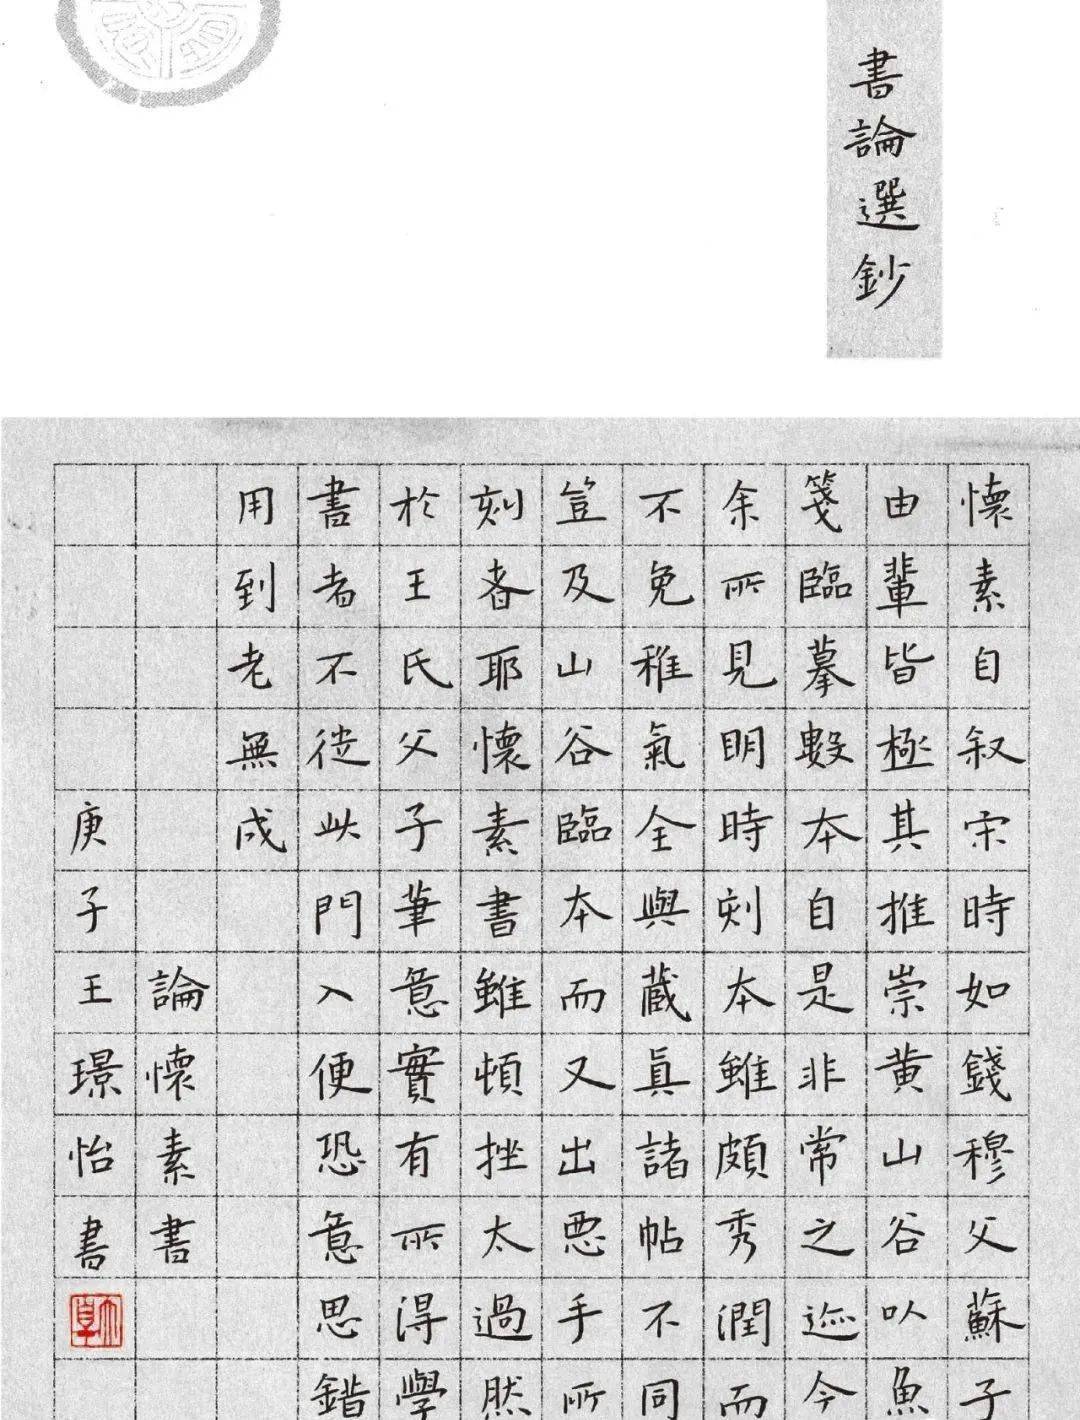 書論選鈔
懷素自叙宋時如錢穆父蘇子
由輩皆極其推崇黄山谷以魚
箋臨摹數本自是非常之迹今
余所見明時刻本雖頗秀潤而
不免稚氣全與藏真諸帖不同
豈及山谷臨本而又出惡手所
刻者耶懷素書雖頓挫太過然
於王氏父子筆意實有所得學
書者不從此門入便恐意思錯
用到老無成
論懷素書
庚子王璟怡書